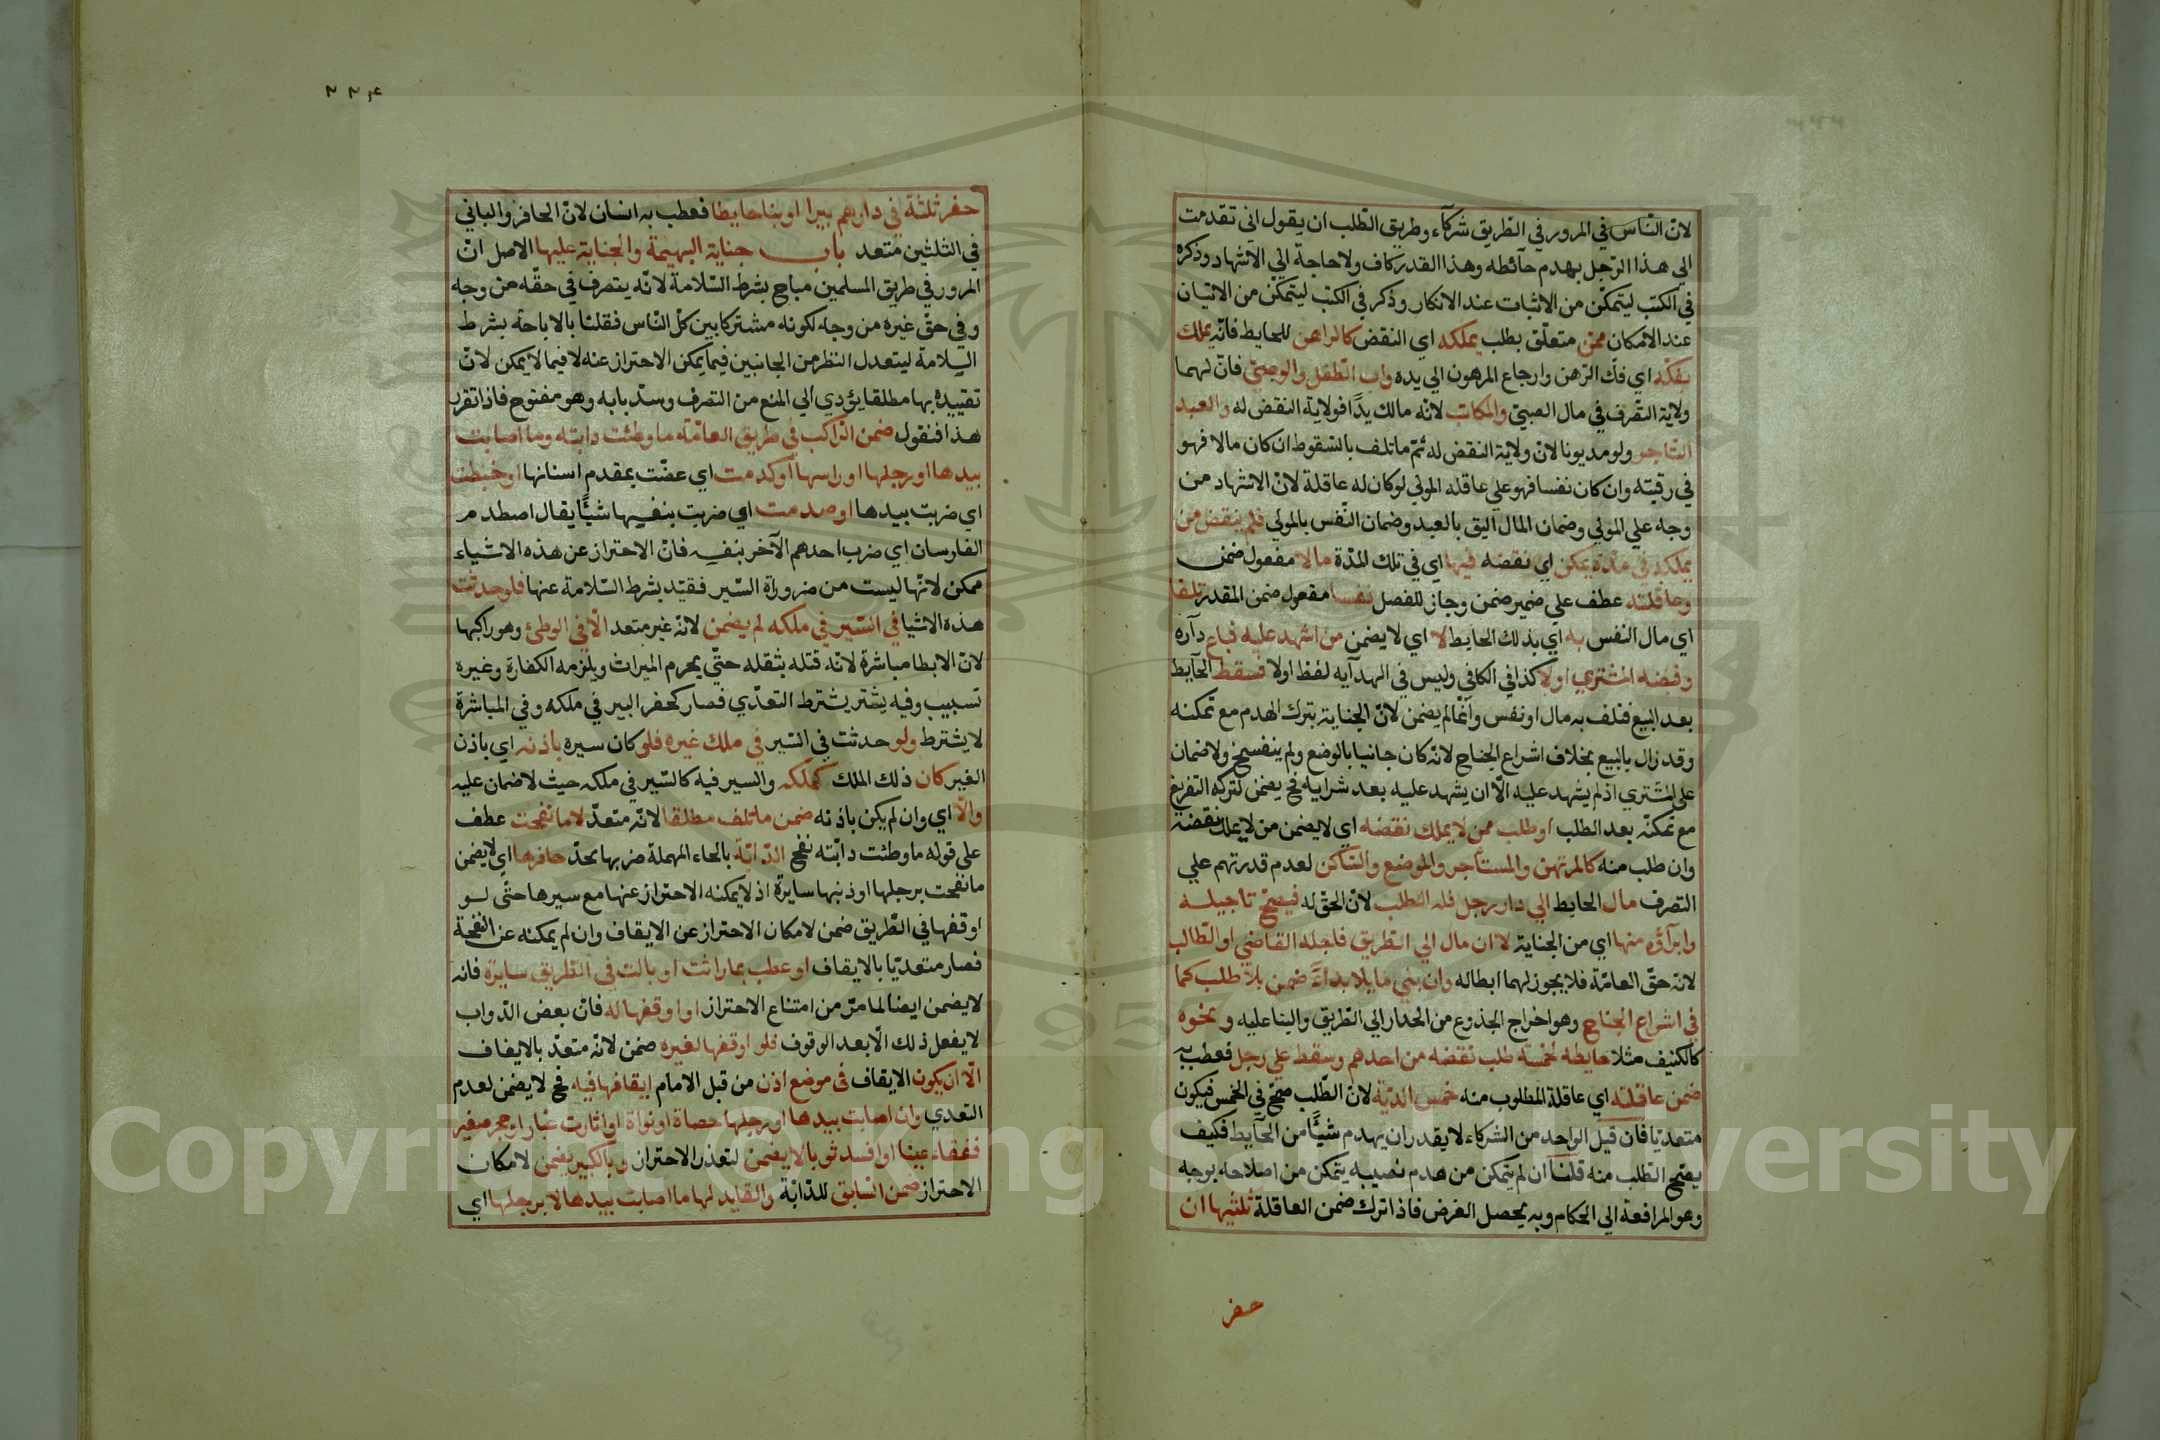 لانّ النّاس في المرور في الطّريق شركآء وطريق الطّلب ان يقول اني تقدمت
الي هذا الرّجل بهدم حآئطه وهذا القدر كاف ولا حاجة الي الاشهاد وذكره
في الكتب ليتمكّن من الاثبات عند الانكار وذكر في الكتب ليتمكّن من الاتيان
عند الامكان ممّن متعلّق بطلب يملكه اي النقض كالراهن للحايط فانّه يملك
بفكّه اي فكّ الرّهن وارجاع المرهون الي يده واب الطّفل والوصيّ فانّ لهما
ولاية التّصرف في مال الصبيّ والمكاتب لانّه مالك يدًا فولاية النقض له والعبد
التّاجر ولو مديونا لانّ ولاية النقض له ثمّ ما تلف بالسّقوط ان كان مالا فهو
في رقبته وان كان نفسا فهو علي عاقلة المولي لو كان له عاقلة لانّ الاشهاد من
وجه علي المولي وضمان المال اليق بالعبد وضمان النّفس بالمولي فلم ينقض من
يملكه في مدّة يمكن اي نقضه فيها اي في تلك المدّة مالا مفعول ضمن
وعاقلته عطف علي ضمير ضمن وجاز للفصل نفسا مفعول ضمن المقدر تلفا
اي مال النفس به اي بذلك الحايط لا اي لا يضمن من اشهد عليه فباع داره
وقبضه المشتري اولا كذا في الكافي وليس في الهدآيه لفظ اولا فسقط الحآيط
بعد البيع فتلف به مال او نفس وانّما لم يضمن لانّ الجناية بترك الهدم مع تمكنه
وقد زال بالبيع بخلاف اشراع الجناح لانّه كان جانيا بالوضع ولم ينفسخ ولا ضمان
علي المشتري اذ لم يشهد عليه الّا ان يشهد عليه بعد شرايه فح يضمن لتركه التفريغ
مع تمكنّه بعد الطلب او طلب ممن لا يملك نقضه اي لا يضمن من لا يملك نقضه
وان طلب منه كالمرتهن والمستأجر والموضع والسّاكن لعدم قدرتهم علي
التصرف مال الحايط الي دار رجل فله الطلب لانّ الحقّ له فيصحّ تاجيله
وابرآؤه منها اي من الجناية لا ان مال الي الطريق فاجله القاضي او الطّالب
لانّه حقّ العامّة فلا يجوز لهما ابطاله وان بني مايلا بداءً ضمن بلا طلب كما
في اشراع الجناح وهو اخراج الجذوع من الجدار الي الطّريق والبنا عليه ونحوه
كالكنيف مثلا حايطه لخمسة طلب نقضه من احدهم وسقط علي رجل فعطب به
ضمن عاقلته اي عاقلة المطلوب منه خمس الديّة لانّ الطّلب صحّ في الخمس فيكون
متعديّا فان قيل الواحد من الشركاء لا يقدر ان يهدم شيأً من الحآيط فكيف
يصحّ الطّلب منه قلنآ ان لم يتمكن من هدم نصيبه يتمكن من اصلاحه بوجه
وهو المرافعة الي الحكام وبه يحصل الغرض فاذا ترك ضمن العاقلة ثلثيها ان
حفر
٣٣٤
حفر ثلثة في دارهم بيرا او بنا حايطا فعطب به انسان لانّ الحافر والباني
في الثلثين متعد باب جناية البهيمة والجناية عليها الاصل انّ
المرور في طريق المسلمين مباح بشرط السّلامة لانّه يتصرف في حقّه من وجه
وفي حقّ غيره من وجه لكونه مشتركا بين كلّ النّاس فقلنا بالاباحة بشرط
السّلامة ليتعدل النظر من الجانبين فيما يمكن الاحتراز عنه لا فيما لا يمكن لانّ
تقييده بها مطلقا يؤدي الي المنع من التصرف وسدّ بابه وهو مفتوح فاذا تقرر
هذا فنقول ضمن الرّاكب في طريق العامّة ما وطئت دابته وما اصابت
بيدها او رجلها او راسها او كدمت اي عضّت بمقدم اسنانها او خبطت
اي ضربت بيدها او صدمت اي ضربت بنفسها شيأً يقال اصطدم
الفارسان اي ضرب احدهم الآخر بنفسه فانّ الاحتراز عن هذه الاشياء
ممكن لانّها ليست من ضروراة السّير فقيّد بشرط السّلامة عنها فلو حدثت
هذه الاشيا في السّير في ملكه لم يضمن لانّه غير متعد الّا في الوطئ وهو راكبها
لانّ الايطا مباشرة لانّه قتله بثقله حتّي يحرم الميراث ويلزمه الكفارة وغيره
تسبيب وفيه يشتر يشترط التعدّي فصار كحفر البير في ملكه وفي المباشرة
لا يشترط ولو حدثت في السّير في ملك غيره فلو كان سيره باذنه اي باذن
الغير كان ذلك الملك كملكه والسير فيه كالسّير في ملكه حيث لا ضمان عليه
والّا اي وان لم يكن باذنه ضمن ما تلف مطلقا لانّه متعدّ لا ما نفحت عطف
علي قوله ما وطئت دابّته نفح الدّابّة بالحاء المهملة ضربها بحدّ حافرها اي لا يضمن
ما نفحت برجلها او ذنبها سايرة اذ لا يمكنه الاحتراز عنها مع سيرها حتّي لو
اوقفها في الطّريق ضمن لامكان الاحتراز عن الايقاف وان لم يمكنه عن النّفحة
فصار متعديّا بالايقاف او عطب بما راثت او بالت في الطّريق سايرة فانه
لا يضمن ايضا لما مرّ من امتناع الاحتراز او اوقفها له فانّ بعض الدّواب
لا يفعل ذلك الّا بعد الوقوف فلو اوقفها لغيره ضمن لانّه متعدّ بالايقاف
الّا ان يكون الايقاف في موضع اذن من قبل الامام ايقافها فيه فح لا يضمن لعدم
التعدي وان اصابت بيدها او رجلها حصاة او نواة او اثارت غبارا او حجر صغير
ففقاء عينا او افسد ثوبا لا يضمن لتعذر الاحتراز وبالكبير يضمن لامكان
الاحتراز ضمن السّايق للدّابّة والقايد لها ما اصابت بيدها لا برجلها اي
Copyright © King Saud University
1957